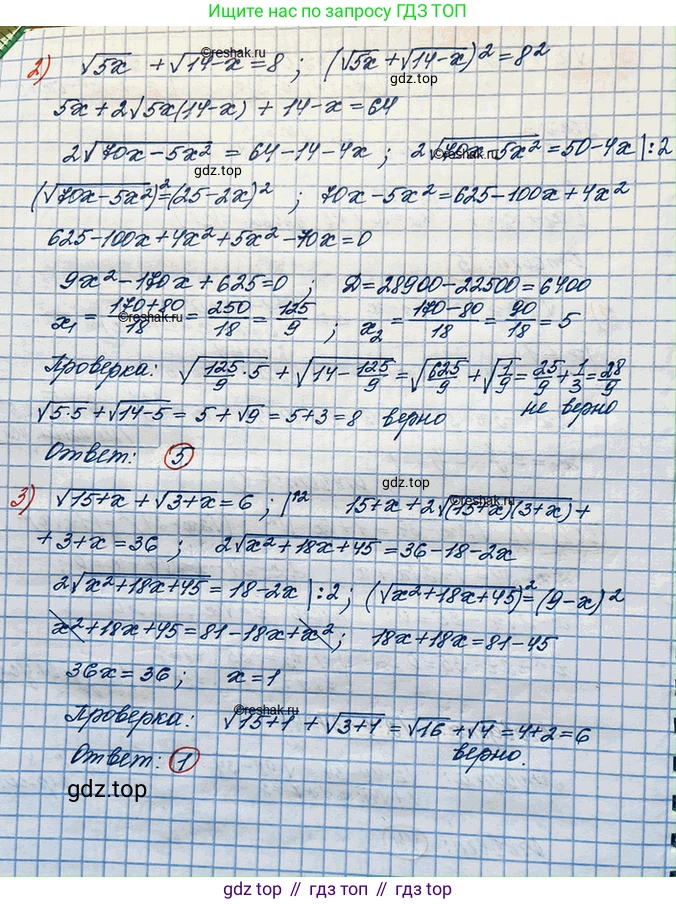 Ищите по запросу ГДЗ ТОП
2) √5x + √14-x = 8 ; (√5x + √14-x)² = 8²
©reshak.ru
gdz.top
5x + 2√5x(14-x) + 14-x = 64
2√70x-5x² = 64-14-4x ; 2√70x-5x² = 50-4x |:2
©reshak.ru
gdz.top
(√70x-5x²)² = (25-2x)² ; 70x-5x² = 625-100x+4x²
625-100x+4x²+5x²-70x=0
9x²-170x+625=0 ; D=28900-22500=6400
x₁ = 170+80/18 = 250/18 = 125/9 ; x₂ = 170-80/18 = 90/18 = 5
©reshak.ru
Проверка: √125/9·5 + √14-125/9 = √625/9 + √1/9 = 25/9 + 1/3 = 28/9
не верно
√5·5 + √14-5 = 5+√9 = 5+3=8 верно
Ответ: 5
gdz.top
3) √15+x + √3+x = 6 ; |² 15+x+2√(15+x)(3+x) +
©reshak.ru
+3+x=36 ; 2√x²+18x+45 = 36-18-2x
2√x²+18x+45 = 18-2x |:2 ; (√x²+18x+45)² = (9-x)²
x²+18x+45=81-18x+x² ; 18x+18x=81-45
36x=36 ; x=1
gdz.top
©reshak.ru
Проверка: √15+1 + √3+1 = √16 + √4 = 4+2=6
верно.
Ответ: 1
gdz.top
gdz top // гдз топ // gdz.top